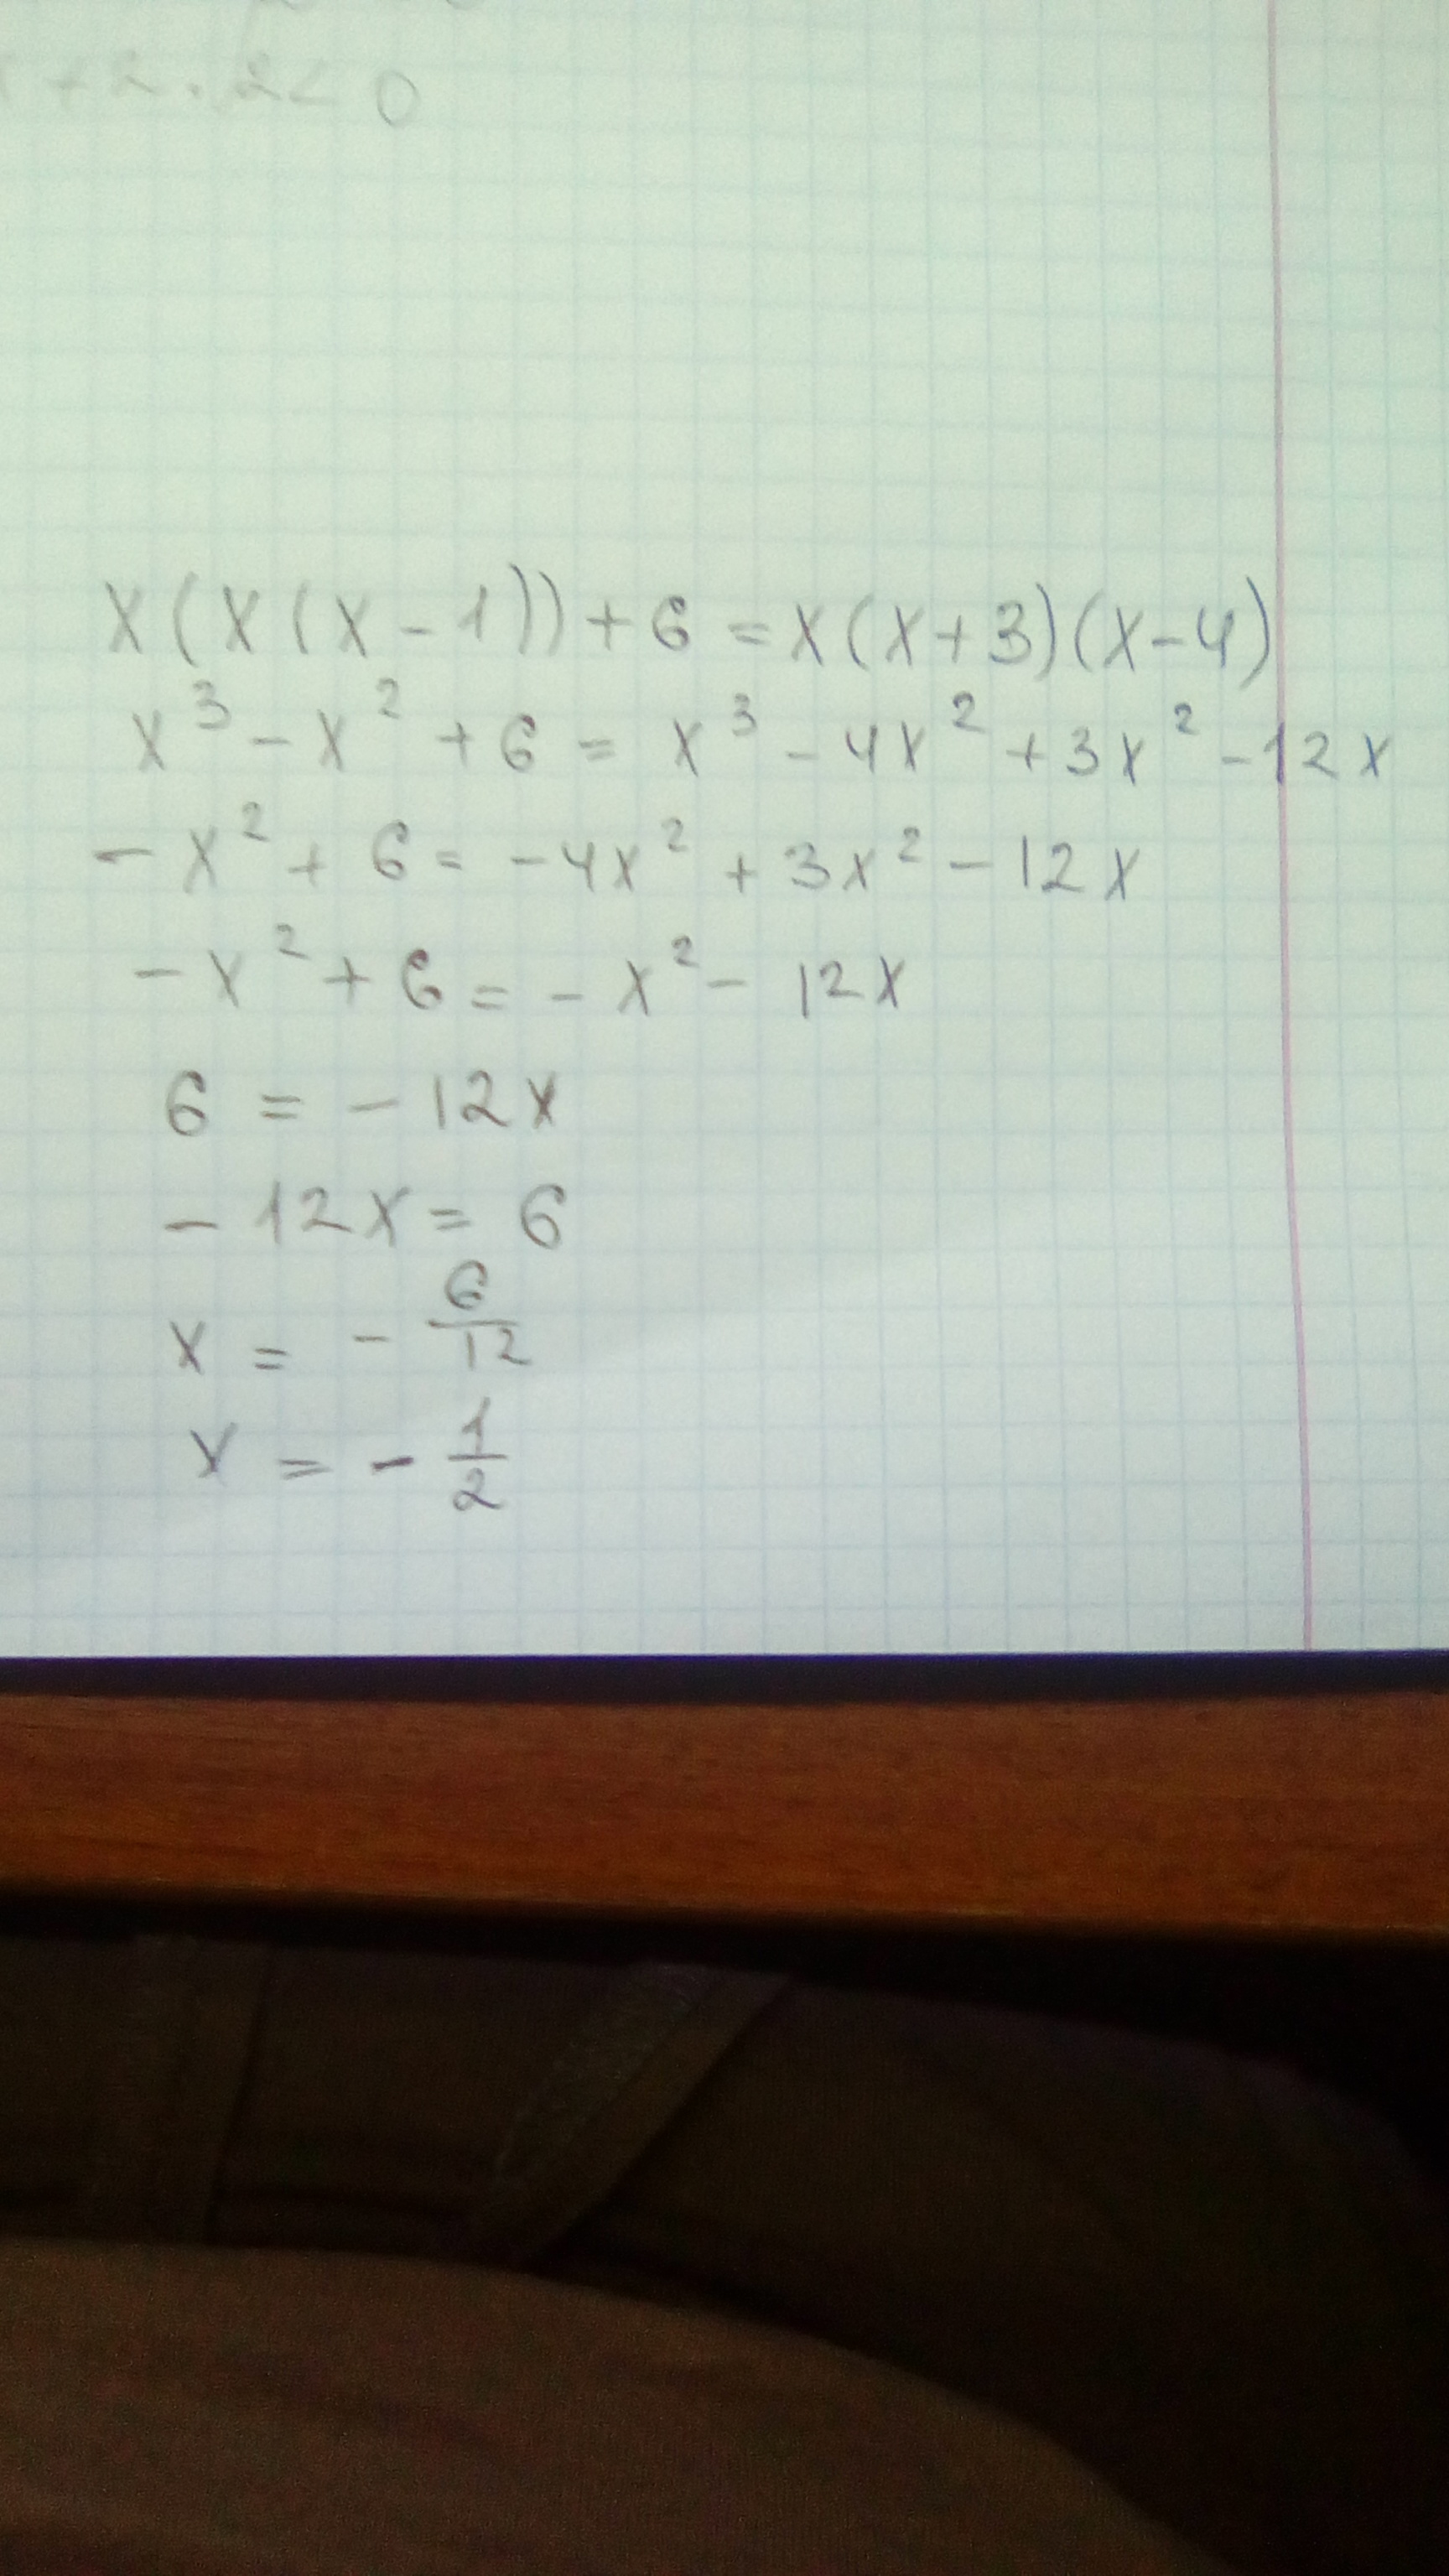 +2.2<0
x(x(x-1))+6=x(x+3)(x-4)
x³-x²+6=x³-4x²+3x²-12x
-x²+6=-4x²+3x²-12x
-x²+6=-x²-12x
6=-12x
-12x=6
x=-6/12
x=-1/2